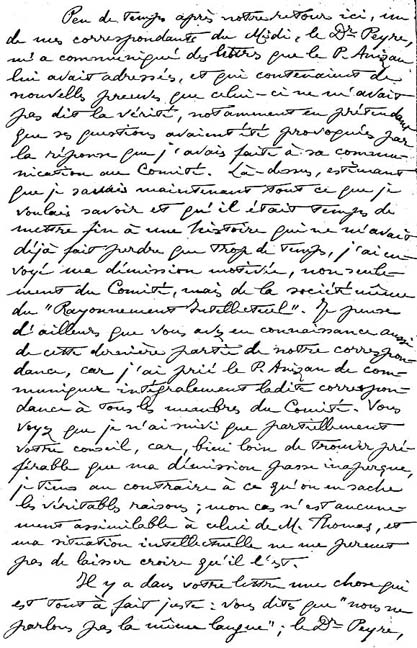 Peu de temps après notre retour ici, un
de mes correspondants du Midi, le Dr Peyre,
m'a communiqué des lettres que le P. Anizan
lui avait adressées, et qui contenaient de
nouvelles preuves que celui-ci ne m'avait
pas dit la vérité, notamment en prétendant
que ses questions avaient été provoquées par
la réponse que j'avais faite à sa commu-
nication au Comité. Là-dessus, estimant
que je savais maintenant tout ce que je
voulais savoir et qu'il était temps de
mettre fin à une histoire qui ne m'avait
déjà fait perdre que trop de temps, j'ai en-
voyé ma démission motivée, non seule-
ment du Comité, mais de la société même
du "Rayonnement Intellectuel". Je pense
d'ailleurs que vous avez eu connaissance aussi
de cette dernière partie de notre correspon-
dance, car j'ai prié le P. Anizan de com-
muniquer intégralement ladite correspon-
dance à tous les membres du Comité. Vous
voyez que je n'ai suivi que partiellement
votre conseil, car, bien loin de trouver pré-
férable que ma démission passe inaperçue,
je tiens au contraire à ce qu'on en sache
les véritables raisons ; mon cas n'est aucune-
ment assimilable à celui de M. Thomas, et
ma situation intellectuelle ne me permet
pas de laisser croire qu'il l'est.
Il y a dans votre lettre une chose qui
est tout à fait juste : vous dites que "nous ne
parlons pas la même langue" ; le Dr Peyre,